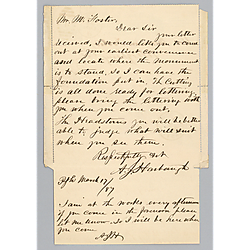 Mr. M. Foster
Dear Sir
your letter
received, I would like you to come
out at your earliest convenience
and locate where the monument
is to stand, So I can have the
foundation put in. The Cutting
is all done ready for lettering
please bring the lettering with
you when you come out.
The Headstones you will be better
able to judge what will suit
when you see them.
Respectfully &c
March 17/
I am at the works every afternoon
if you come in the forenoon please
let me know. So I will be here when
you come